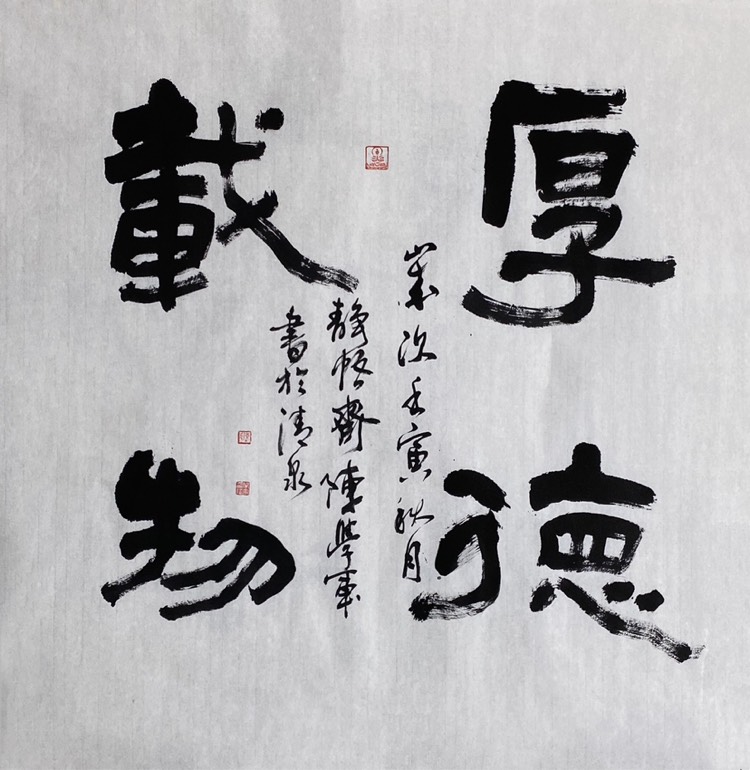 厚德
載物
歲次壬寅秋月
靜悟齋陳學軍
書於清泉